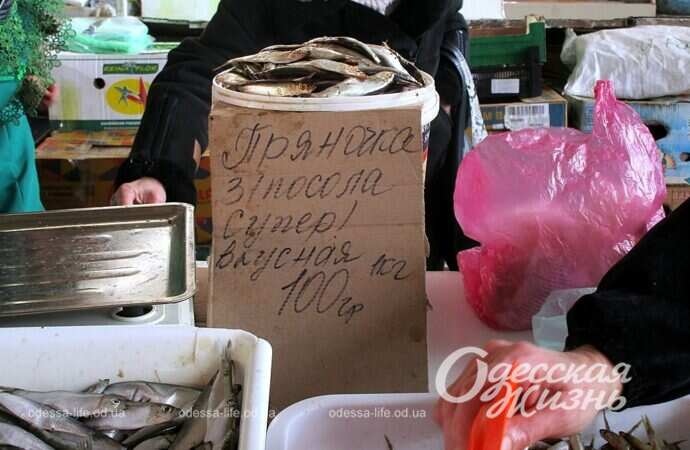 Пряночка
з/посола
супер!
вкусная 1кг
100 гр
Одесская
Жизнь
odessa-life.od.ua
odessa-life.od.ua odessa-life.od.ua
odessa-life.od.ua